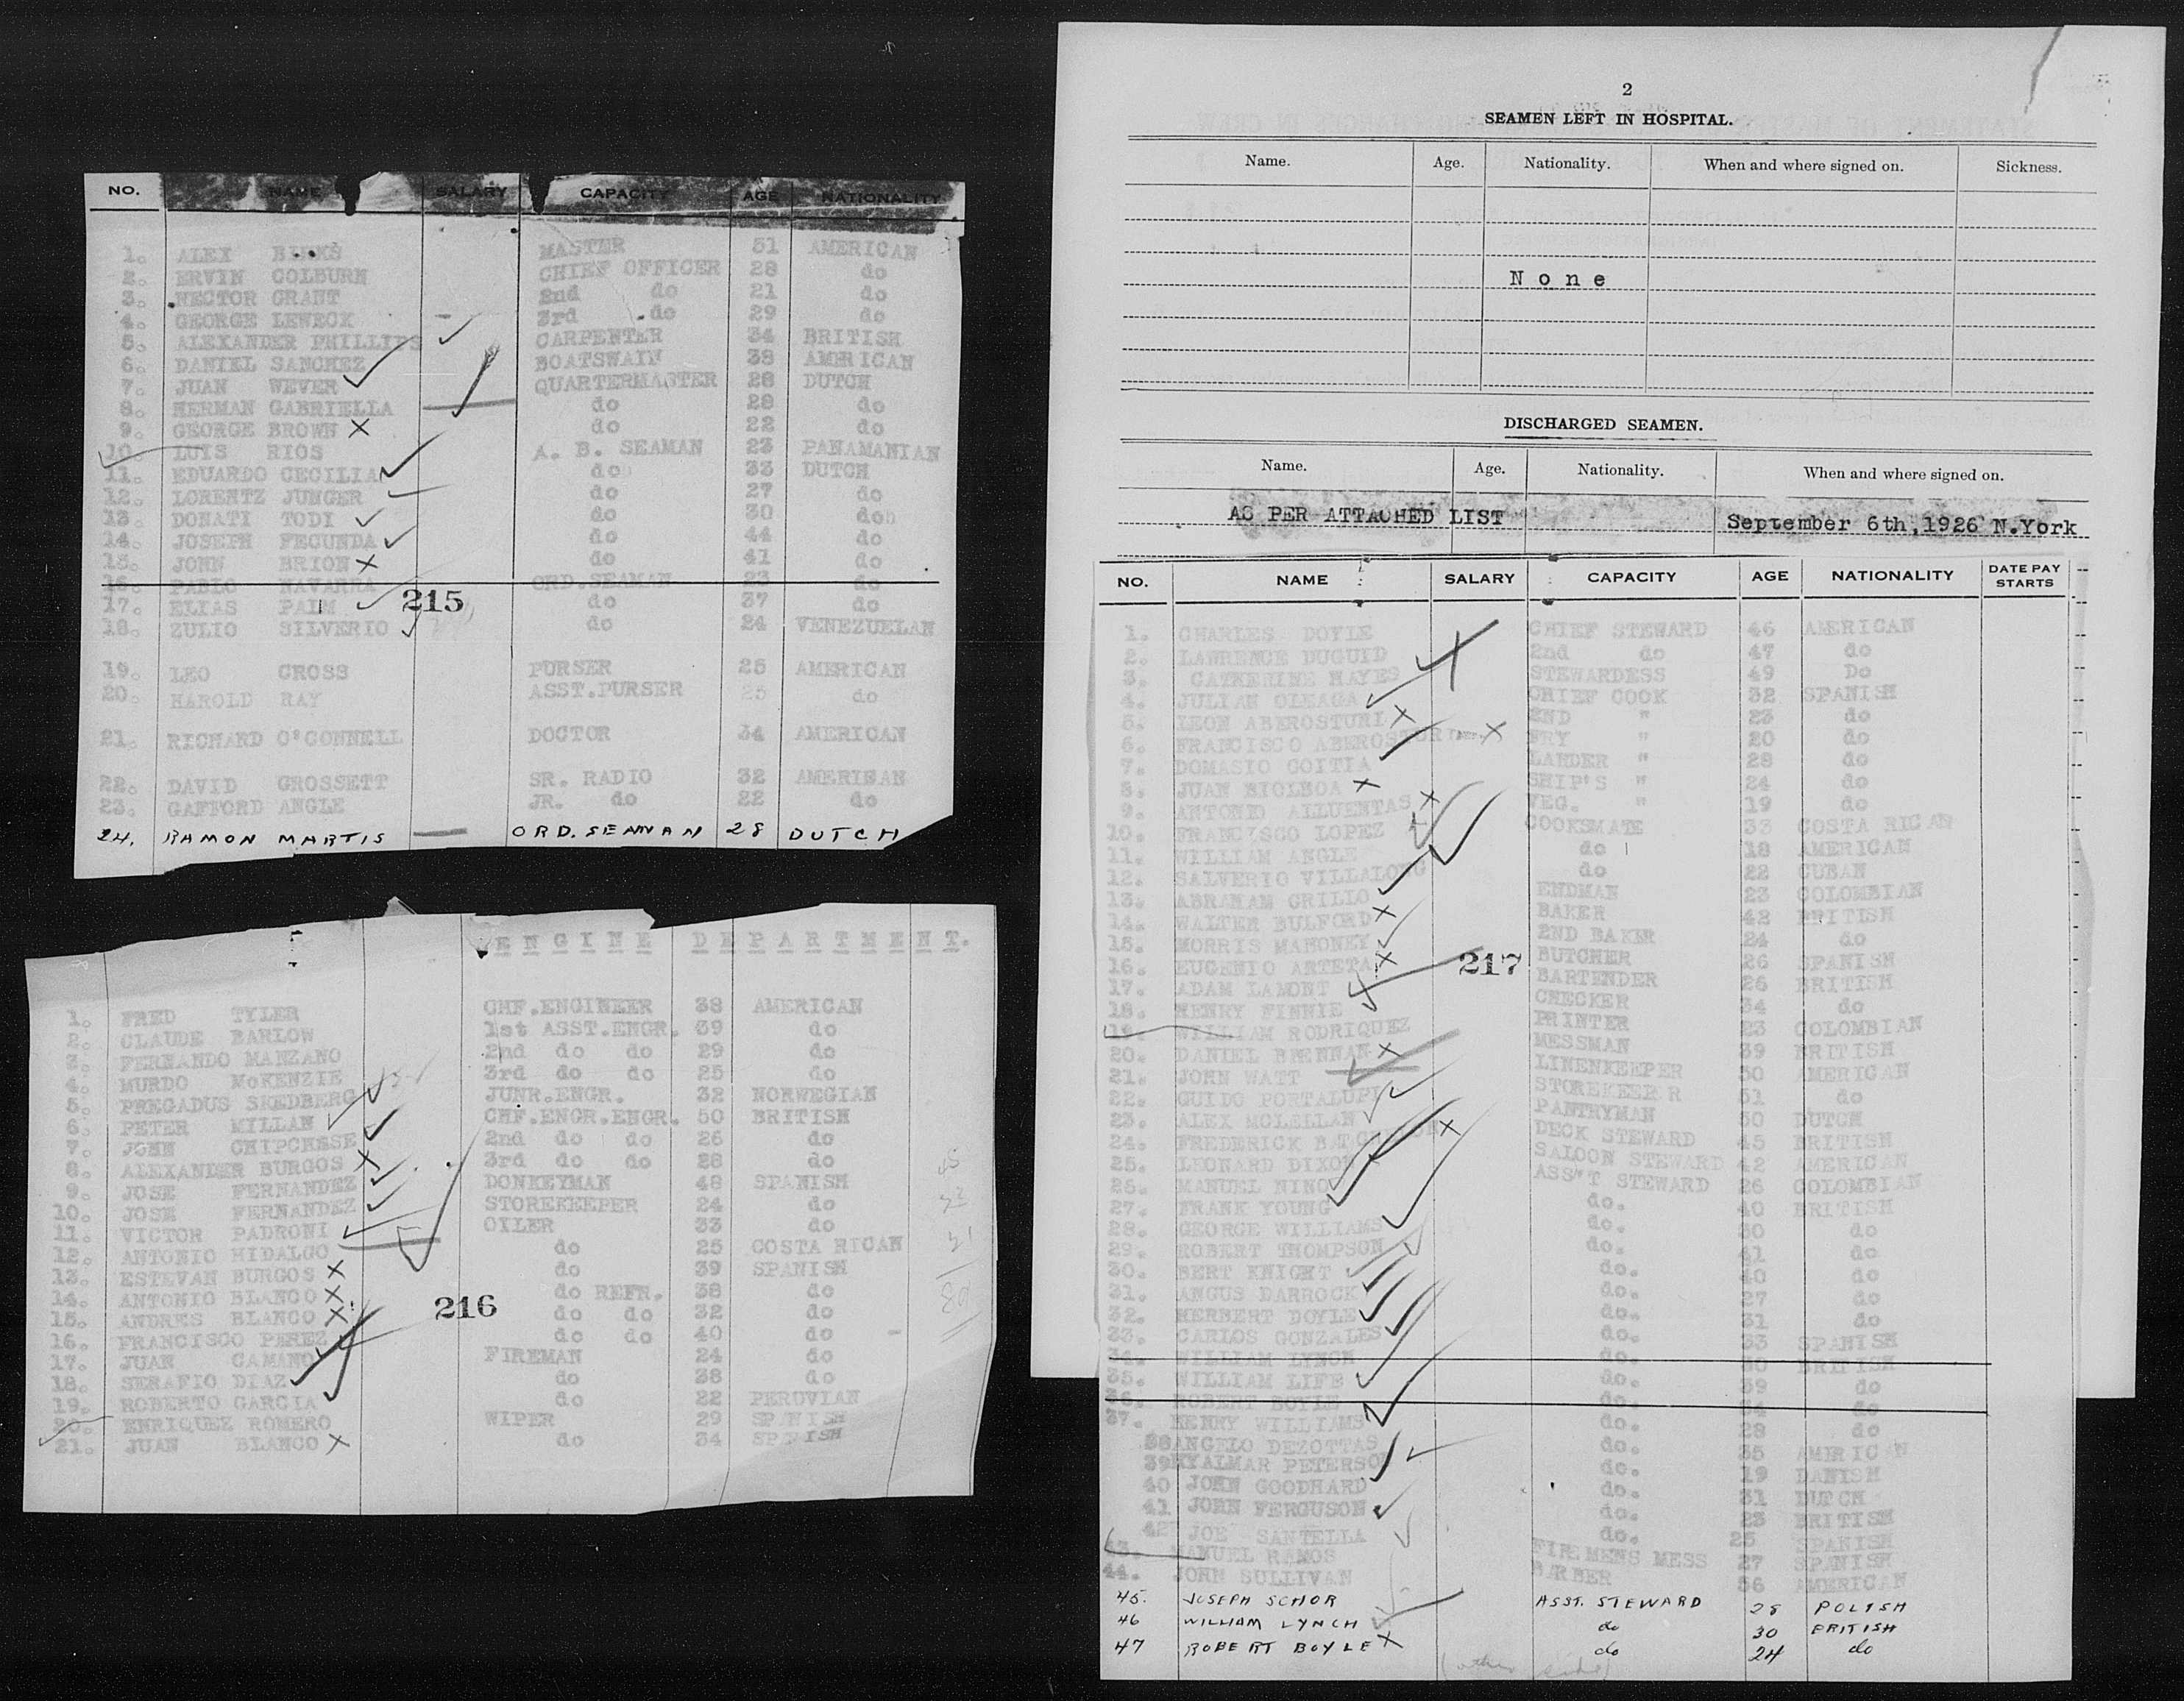 NO. NAME SALARY CAPACITY AGE NATIONALITY
1. ALEX BINKS MASTER 31 AMERICAN
2. ERVIN COLBURN CHIEF OFFICER 28 do
3. HECTOR GRANT 2nd do 21 do
4. GEORGE LEWECK 3rd do 29 do
5. ALEXANDER PHILLIPS CARPENTER 34 BRITISH
6. DANIEL SANCHEZ BOATSWAIN 38 AMERICAN
7. JUAN WEVER QUARTERMASTER 28 DUTCH
8. HERMAN GABRIELLA do 28 do
9. GEORGE BROWN do 22 do
10. LUIS RIOS A. B. SEAMAN 23 PANAMANIAN
11. EDUARDO CECILIA do 33 DUTCH
12. LORENTZ JUNGER do 27 do
13. DONATI TODI do 30 do
14. JOSEPH FECUNDA do 44 do
15. JOHN BRION do 41 do
16. PABLO NAVARRA ORD.SEAMAN 23 do
17. ELIAS PAIM do 37 do
215
18. ZULIO SILVERIO do 24 VENEZUELAN
19. LEO GROSS PURSER 25 AMERICAN
20. HAROLD RAY ASST.PURSER 25 do
21. RICHARD O'CONNELL DOCTOR 34 AMERICAN
22. DAVID GROSSETT SR. RADIO 32 AMERICAN
23. GAFFORD ANGLE JR. do 22 do
24. RAMON MARTIS ORD. SEAMAN 28 DUTCH
ENGINE DEPARTMENT.
1. FRED TYLER CHF.ENGINEER 38 AMERICAN
2. CLAUDE BARLOW 1st ASST.ENGR. 39 do
3. FERNANDO MANZANO 2nd do do 29 do
4. MURDO McKENZIE 3rd do do 25 do
5. PREGADUS SKEDBERG JUNR.ENGR. 32 NORWEGIAN
6. PETER MILLAN CHF.ENGR.ENGR. 50 BRITISH
7. JOHN CHIPCHASE 2nd do do 26 do
8. ALEXANDER BURGOS 3rd do do 28 do
9. JOSE FERNANDEZ DONKEYMAN 48 SPANISH
10. JOSE FERNANDEZ STOREKEEPER 24 do
11. VICTOR PADRONI OILER 33 do
12. ANTONIO HIDALGO do 25 COSTA RICAN
13. ESTEVAN BURGOS do 39 SPANISH
14. ANTONIO BLANCO do REFR. 38 do
15. ANDRES BLANCO do do 32 do
216
16. FRANCISCO PEREZ do do 40 do
17. JUAN CAMANO FIREMAN 24 do
18. SERAFIO DIAZ do 38 do
19. ROBERTO GARCIA do 22 PERUVIAN
20. ENRIQUEZ ROMERO WIPER 29 SPANISH
21. JUAN BLANCO do 34 SPANISH
2
SEAMEN LEFT IN HOSPITAL.
Name. Age. Nationality. When and where signed on. Sickness.
None
DISCHARGED SEAMEN.
Name. Age. Nationality. When and where signed on.
AS PER ATTACHED LIST September 6th,1926 N.York
NO. NAME SALARY CAPACITY AGE NATIONALITY DATE PAY STARTS
1. CHARLES DOYLE CHIEF STEWARD 46 AMERICAN
2. LAWRENCE DUGUID 2nd do 47 do
3. CATHERINE HAYES STEWARDESS 49 Do
4. JULIAN OLEAGA CHIEF COOK 32 SPANISH
5. LEON ABEROSTURI 2ND " 23 do
6. FRANCISCO ABEROSTURI FRY " 20 do
7. DOMASIO GOITIA LARDER " 28 do
8. JUAN BIOLBOA SHIP'S " 24 do
9. ANTONIO ALLUENTAS VEG. " 19 do
10. FRANCISCO LOPEZ COOKSMATE 33 COSTA RICAN
11. WILLIAM ANGLE do 18 AMERICAN
12. SALVERIO VILLALONG do 22 CUBAN
13. ABRAHAM GRILLO ENDMAN 23 COLOMBIAN
14. WALTER BULFORD BAKER 42 BRITISH
15. MORRIS MAHONEY 2ND BAKER 24 do
16. EUGENIO ARTETA BUTCHER 26 SPANISH
217
17. ADAM LAMONT BARTENDER 26 BRITISH
18. HENRY FINNIE CHECKER 34 do
19. WILLIAM RODRIQUEZ PRINTER 23 COLOMBIAN
20. DANIEL BRENNAN MESSMAN 39 BRITISH
21. JOHN WATT LINENKEEPER 50 AMERICAN
22. GUIDO PORTALUPI STOREKEEPER 51 do
23. ALEX MCLELLAN PANTRYMAN 50 DUTCH
24. FREDERICK DECK STEWARD 45 BRITISH
25. LEONARD DIXON SALOON STEWARD 42 AMERICAN
26. MANUEL NINO ASS"T STEWARD 26 COLOMBIAN
27. FRANK YOUNG do. 40 BRITISH
28. GEORGE WILLIAMS do. 30 do
29. ROBERT THOMPSON do. 41 do
30. BERT KNIGHT do. 40 do
31. ANGUS DARROCK do. 27 do
32. HERBERT DOYLE do. 31 do
33. CARLOS GONZALES do. 33 SPANISH
34. WILLIAM LYNCH do. 30 BRITISH
35. WILLIAM LIFE do. 39 do
36. ROBERT BOYLE do. 24 do
37. HENRY WILLIAMS do. 28 do
38 ANGELO DEZOTTAS do. 35 AMERICAN
39 HYALMAR PETERSON do. 19 DANISH
40 JOHN GOODHARD do. 31 DUTCH
41 JOHN FERGUSON do. 23 BRITISH
42 JOE SANTELLA do. 25 SPANISH
43. MANUEL RAMOS FIREMENS MESS 27 SPANISH
44. JOHN SULLIVAN BARBER 56 AMERICAN
45. JOSEPH SCHOR ASST. STEWARD 28 POLISH
46 WILLIAM LYNCH do 30 BRITISH
47 ROBERT BOYLE do 24 do
(other side)